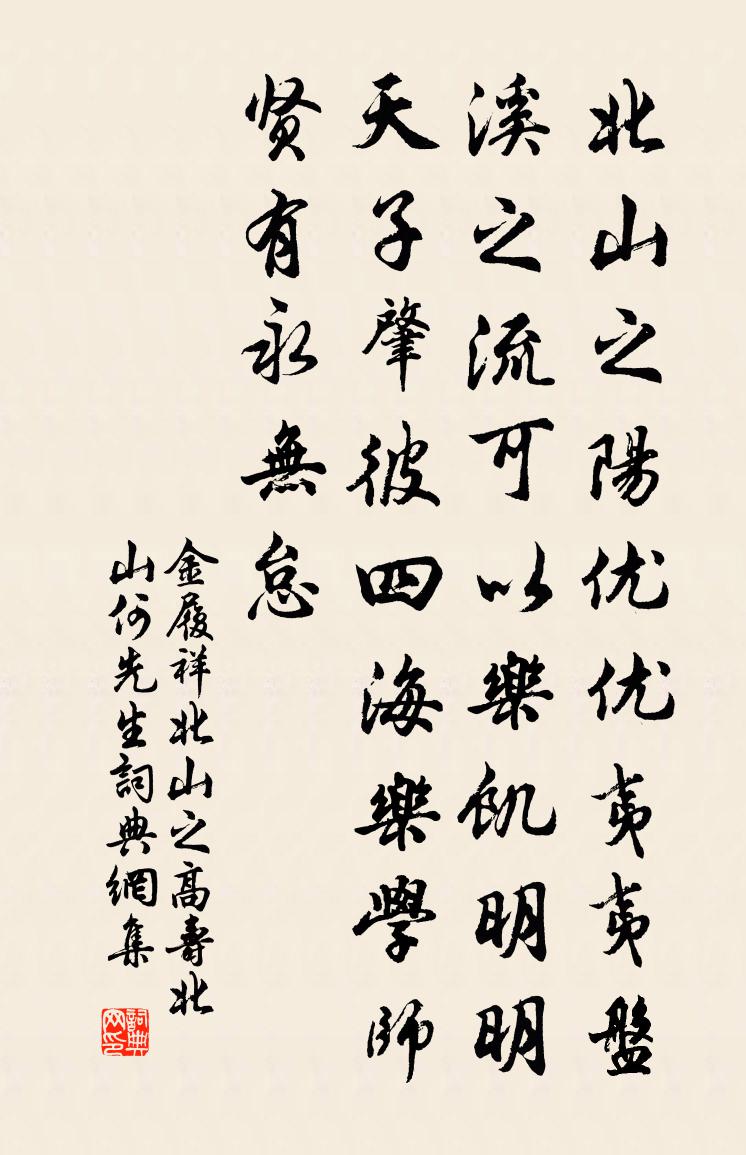 北山之陽优优夷夷盤
溪之流可以樂飢明明
天子肇彼四海樂學師
贤有永無怠
金履祥北山之高壽北
山何先生詞典網集
詞典网印